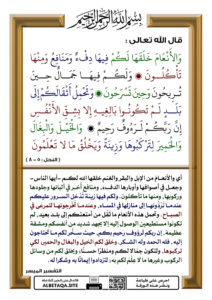 بسم الله الرحمن الرحيم
قال الله تعالى :
وَالْأَنْعَامَ خَلَقَهَا لَكُمْ فِيهَا دِفْءٌ وَمَنَافِعُ وَمِنْهَا
تَأْكُلُونَ ۝ وَلَكُمْ فِيهَا جَمَالٌ حِينَ
تُرِيحُونَ وَحِينَ تَسْرَحُونَ ۝ وَتَحْمِلُ أَثْقَالَكُمْ إِلَى
بَلَدٍ لَمْ تَكُونُوا بَالِغِيهِ إِلَّا بِشِقِّ الْأَنْفُسِ
إِنَّ رَبَّكُمْ لَرَءُوفٌ رَحِيمٌ ۝ وَالْخَيْلَ وَالْبِغَالَ
وَالْحَمِيرَ لِتَرْكَبُوهَا وَزِينَةً وَيَخْلُقُ مَا لَا تَعْلَمُونَ
(النحل: ٥ - ٨)
أي والأنعام من الإبل والبقر والغنم خلقها الله لكم -أيها الناس-
وجعل في أصوافها وأوبارها الدفء، ومنافع أخر في ألبانها وجلودها
وركوبها، ومنها ما تأكلون. ولكم فيها زينة تدخل السرور عليكم
عندما تردونها إلى منازلها في المساء، وعندما تخرجونها للمرعى في
الصباح. وتحمل هذه الأنعام ما ثقل من أمتعتكم إلى بلد بعيد، لم
تكونوا مستطيعين الوصول إليه إلا بجهد شديد من أنفسكم ومشقة
عظيمة، إن ربكم لرؤوف رحيم بكم، حيث سخر لكم ما تحتاجون
إليه، فله الحمد وله الشكر. وخلق لكم الخيل والبغال والحمير؛ لكي
تركبوها، ولتكون جمالا لكم ومنظرًا حسنًا؛ ويخلق لكم من وسائل
الركوب وغيرها ما لا علم لكم به؛ لتزدادوا إيمانًا به وشكرا له.
التفسير الميسر
ALBETAQA.SITE